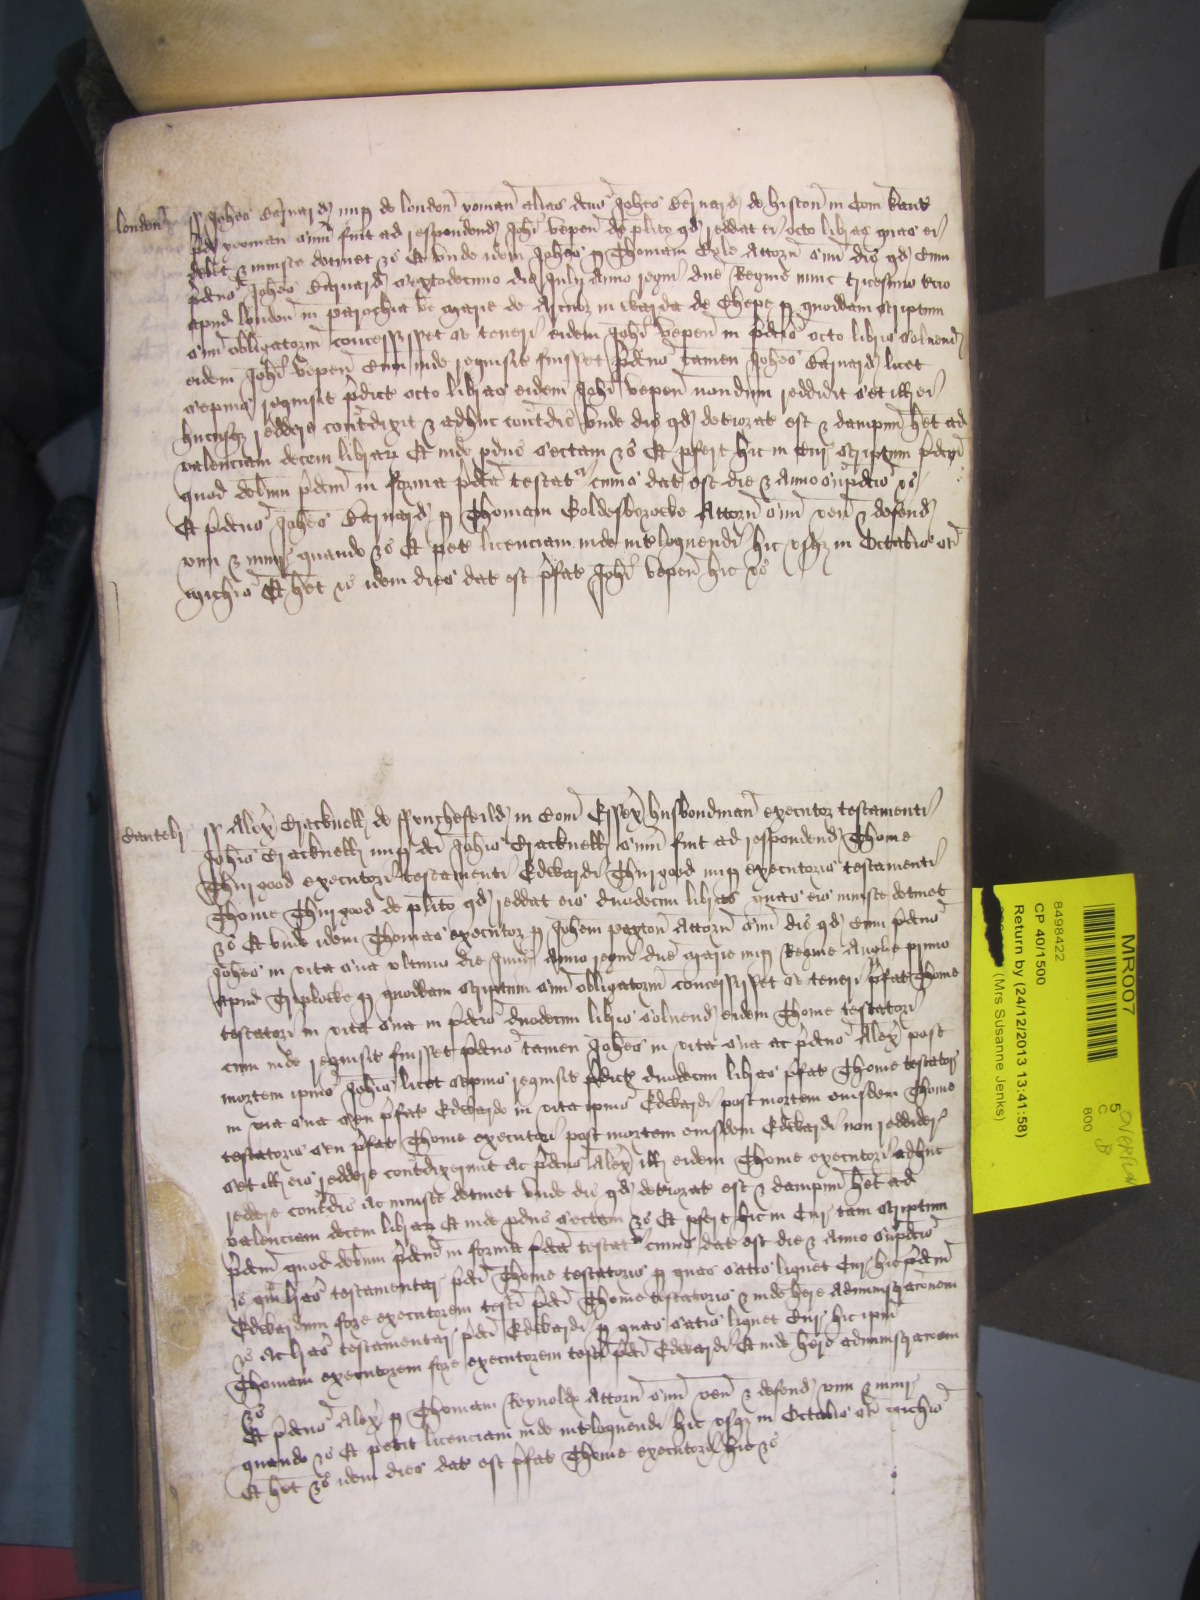 london ss Johes Barnard nup de london yoman alias dcus Johes Barnard de histon in Com Cante
pdco yeoman sum fuit ad respondend Johi Pepen de plito qd reddat ei octo libras quas ei
debet & iniuste detinet &c Et unde idem Johes p Thomam Attorn suu dic qd Cum
pdcus Johes Barnard sextodecimo die Julii Anno regni dne Regine nunc tricesimo
apud london in parochia be marie de Arcubz in Warda de Chepe p quoddam scriptum
suu obligatorm concessisset se teneri eidem Johi Pepen in pdcis octo libris solvend
eidem Johi Pepen Cum inde requisit fuisset pdcus tamen Johes Barnard licet
sepius requisit pdict octo libras eidem Johi Pepen nondum reddidit set ill ei
hucusqz reddere contradixit & adhuc contradic Unde dic qd deteriorat est & dampnu het ad
valenciam decem librar Et inde pduc sectam &c Et pfert hic in Cur scriptum pdcm
quod debitum pdcm in forma pdca testat cuius dat est die & Anno supdcis &c
Et pdcus Johes Barnard p Thomam Goldesborocke Attorn suu ven & defend
vim & iniur quando &c Et pet licenciam inde interloquendi hic usqz in Octabis sci
michis Et het &c idem dies dat est pfat Johi Pepen hic &c
Cantebr ss Alex Cracknell de ffynchefeild in Com Essex husbondman executor testamenti
Johis Cracknell nup dci Johis Cracknell sum fuit ad respondend Thome
Thurgood executori testamenti Edwardi Thurgood nup executoris testamenti
Thome Thurgood de plito qd reddat eis duodecim libras quas eis iniuste detinet
&c Et unde idem Thomas executor p Johem paxton Attorn suu dic qd Cum pdcus
Johes in vita sua ultimo die Anno regni dne marie nup Regine Anglie primo
apud Triplocke p quoddam scriptum suu obligatorm concessisset se teneri pfat Thome
testatori in vita sua in pdcis duodecim libris solvend eidem Thome testatori
cum inde requisit fuisset pdcus tamen Johes in vita sua ac pdcus Alex post
mortem ipius Johis licet sepius requisit pdict duodecim libras pfat Thome testatori
in vita sua seu pfat Edwardo in vita ipius Edwardi post mortem eiusdem Thome
testatoris seu pfat Thome executori post mortem eiusdem Edwardi non reddider
set ill eis reddere contradixerunt ac pdcus Alex ill eidem Thome executori adhuc
reddere contradic ac iniuste detinet Unde dic qd deteriorat est & dampnu het ad
valenciam decem librar Et inde pduc sectam &c Et pfert hic in Cur tam scriptum
pdcm quod debitum pdcm in forma pdca testat cuius dat est die & Anno supdcis
&c qm lras testamentar pdci Thome testatoris p quas satis liquet Cur hic pdcm
Edwardum fore executorem testi pdci Thome testatoris & inde here administracionem
&c Ac lras testamentar pdci Edwardi p quas satis liquet Cur hic ipm
Thomam executorem fore executorem testi pdci Edwardi Et inde here administracionem
&c
Et pdcus Alex p Thomam Reynolde Attorn suu ven & defend vim & iniur
quando &c Et petit licenciam inde interloquendi hic usqz in Octabis sci michis
Et het &c idem dies dat est pfat Thome executori hic &c
MR007
5
C
800
8498422
CP 40/1500
Return by (24/12/2013 13:41:58)
(Mrs Susanne Jenks)